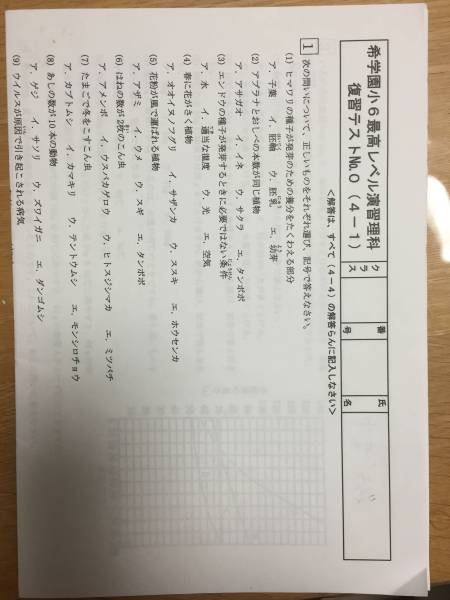 希学園小6最高レベル演習理科
復習テストNo.0(4-1)
クラス
番号
氏名
<解答は、すべて(4-4)の解答らんに記入しなさい>
1 次の問いについて、正しいものをそれぞれ選び、記号で答えなさい。
(1) ヒマワリの種子が発芽のための養分をたくわえる部分
ア.子葉 イ.胚軸 ウ.胚乳 エ.幼芽
(2) アブラナとおしべの本数が同じ植物
ア.アサガオ イ.イネ ウ.サクラ エ.タンポポ
(3) エンドウの種子が発芽するときに必要ではない条件
ア.水 イ.適当な温度 ウ.光 エ.空気
(4) 春に花がさく植物
ア.オオイヌノフグリ イ.サザンカ ウ.ススキ エ.ホウセンカ
(5) 花粉が風で運ばれる植物
ア.アザミ イ.ウメ ウ.スギ エ.タンポポ
(6) はねの数が2枚のこん虫
ア.アメンボ イ.ウスバカゲロウ ウ.ヒトスジシマカ エ.ミツバチ
(7) たまごで冬をこすこん虫
ア.カブトムシ イ.カマキリ ウ.テントウムシ エ.モンシロチョウ
(8) あしの数が10本の動物
ア.ゲジ イ.サソリ ウ.ズワイガニ エ.ダンゴムシ
(9) ウイルスが原因で引き起こされる病気